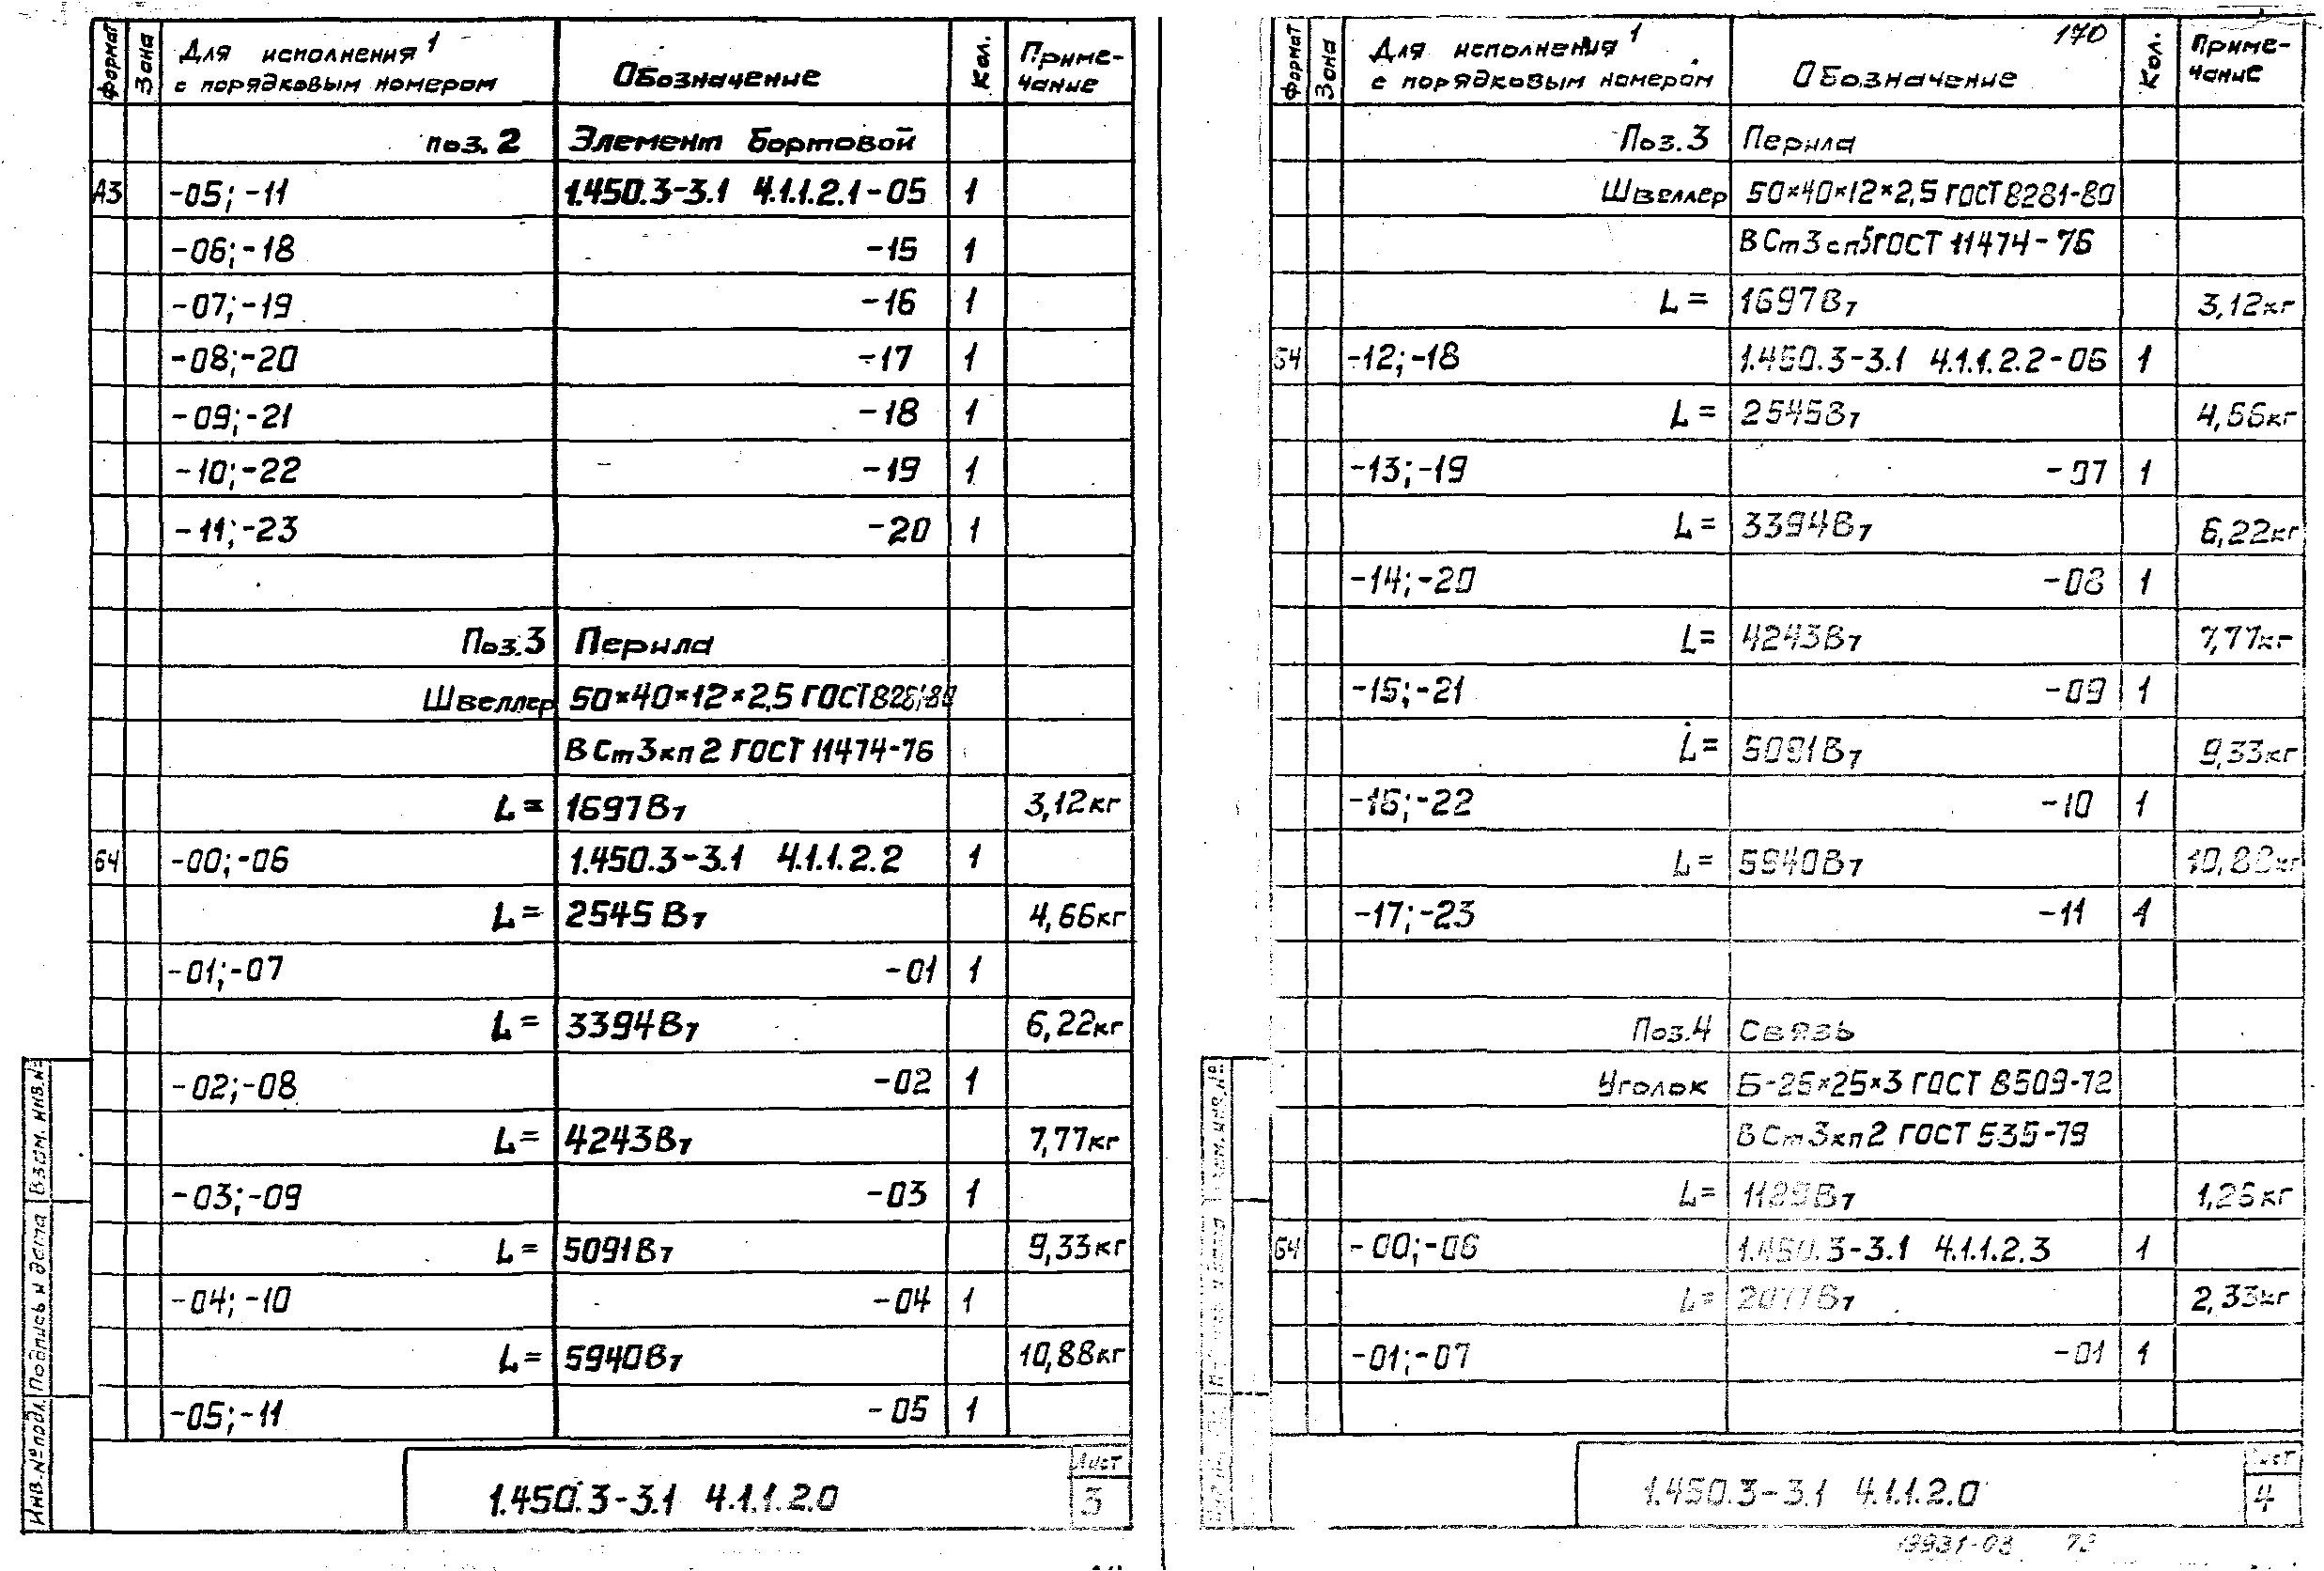 Формат Зона Для исполнения 1 с порядковым номером Обозначение Кол. Приме-чание
поз. 2 Элемент бортовой
А3 -05; -11 1.450.3-3.1 4.1.1.2.1-05 1
-06; -18 -15 1
-07; -19 -16 1
-08; -20 -17 1
-09; -21 -18 1
-10; -22 -19 1
-11; -23 -20 1
Поз. 3 Перила
Швеллер 50×40×12×2,5 ГОСТ 8281-80
В Ст 3 кп 2 ГОСТ 11474-76
L = 1697 В7 3,12 кг
Б4 -00; -06 1.450.3-3.1 4.1.1.2.2 1
L = 2545 В7 4,66 кг
-01; -07 -01 1
L = 3394 В7 6,22 кг
-02; -08 -02 1
L = 4243 В7 7,77 кг
-03; -09 -03 1
L = 5091 В7 9,33 кг
-04; -10 -04 1
L = 5940 В7 10,88 кг
-05; -11 -05 1
Инв. № подл. Подпись и дата Взам. инв. №
1.450.3-3.1 4.1.1.2.0
Лист
3
170
Формат Зона Для исполнения 1 с порядковым номером Обозначение Кол. Приме-чание
Поз. 3 Перила
Швеллер 50×40×12×2,5 ГОСТ 8281-80
В Ст 3 сп 5 ГОСТ 11474-76
L = 1697 В7 3,12 кг
Б4 -12; -18 1.450.3-3.1 4.1.1.2.2-06 1
L = 2545 В7 4,66 кг
-13; -19 -07 1
L = 3394 В7 6,22 кг
-14; -20 -08 1
L = 4243 В7 7,77 кг
-15; -21 -09 1
L = 5091 В7 9,33 кг
-16; -22 -10 1
L = 5940 В7 10,88 кг
-17; -23 -11 1
Поз. 4 Связь
Уголок Б-25×25×3 ГОСТ 8509-72
В Ст 3 кп 2 ГОСТ 535-79
L = 1129 В7 1,26 кг
Б4 -00; -06 1.450.3-3.1 4.1.1.2.3 1
L = 2077 В7 2,33 кг
-01; -07 -01 1
1.450.3-3.1 4.1.1.2.0
Лист
4
19931-03 73